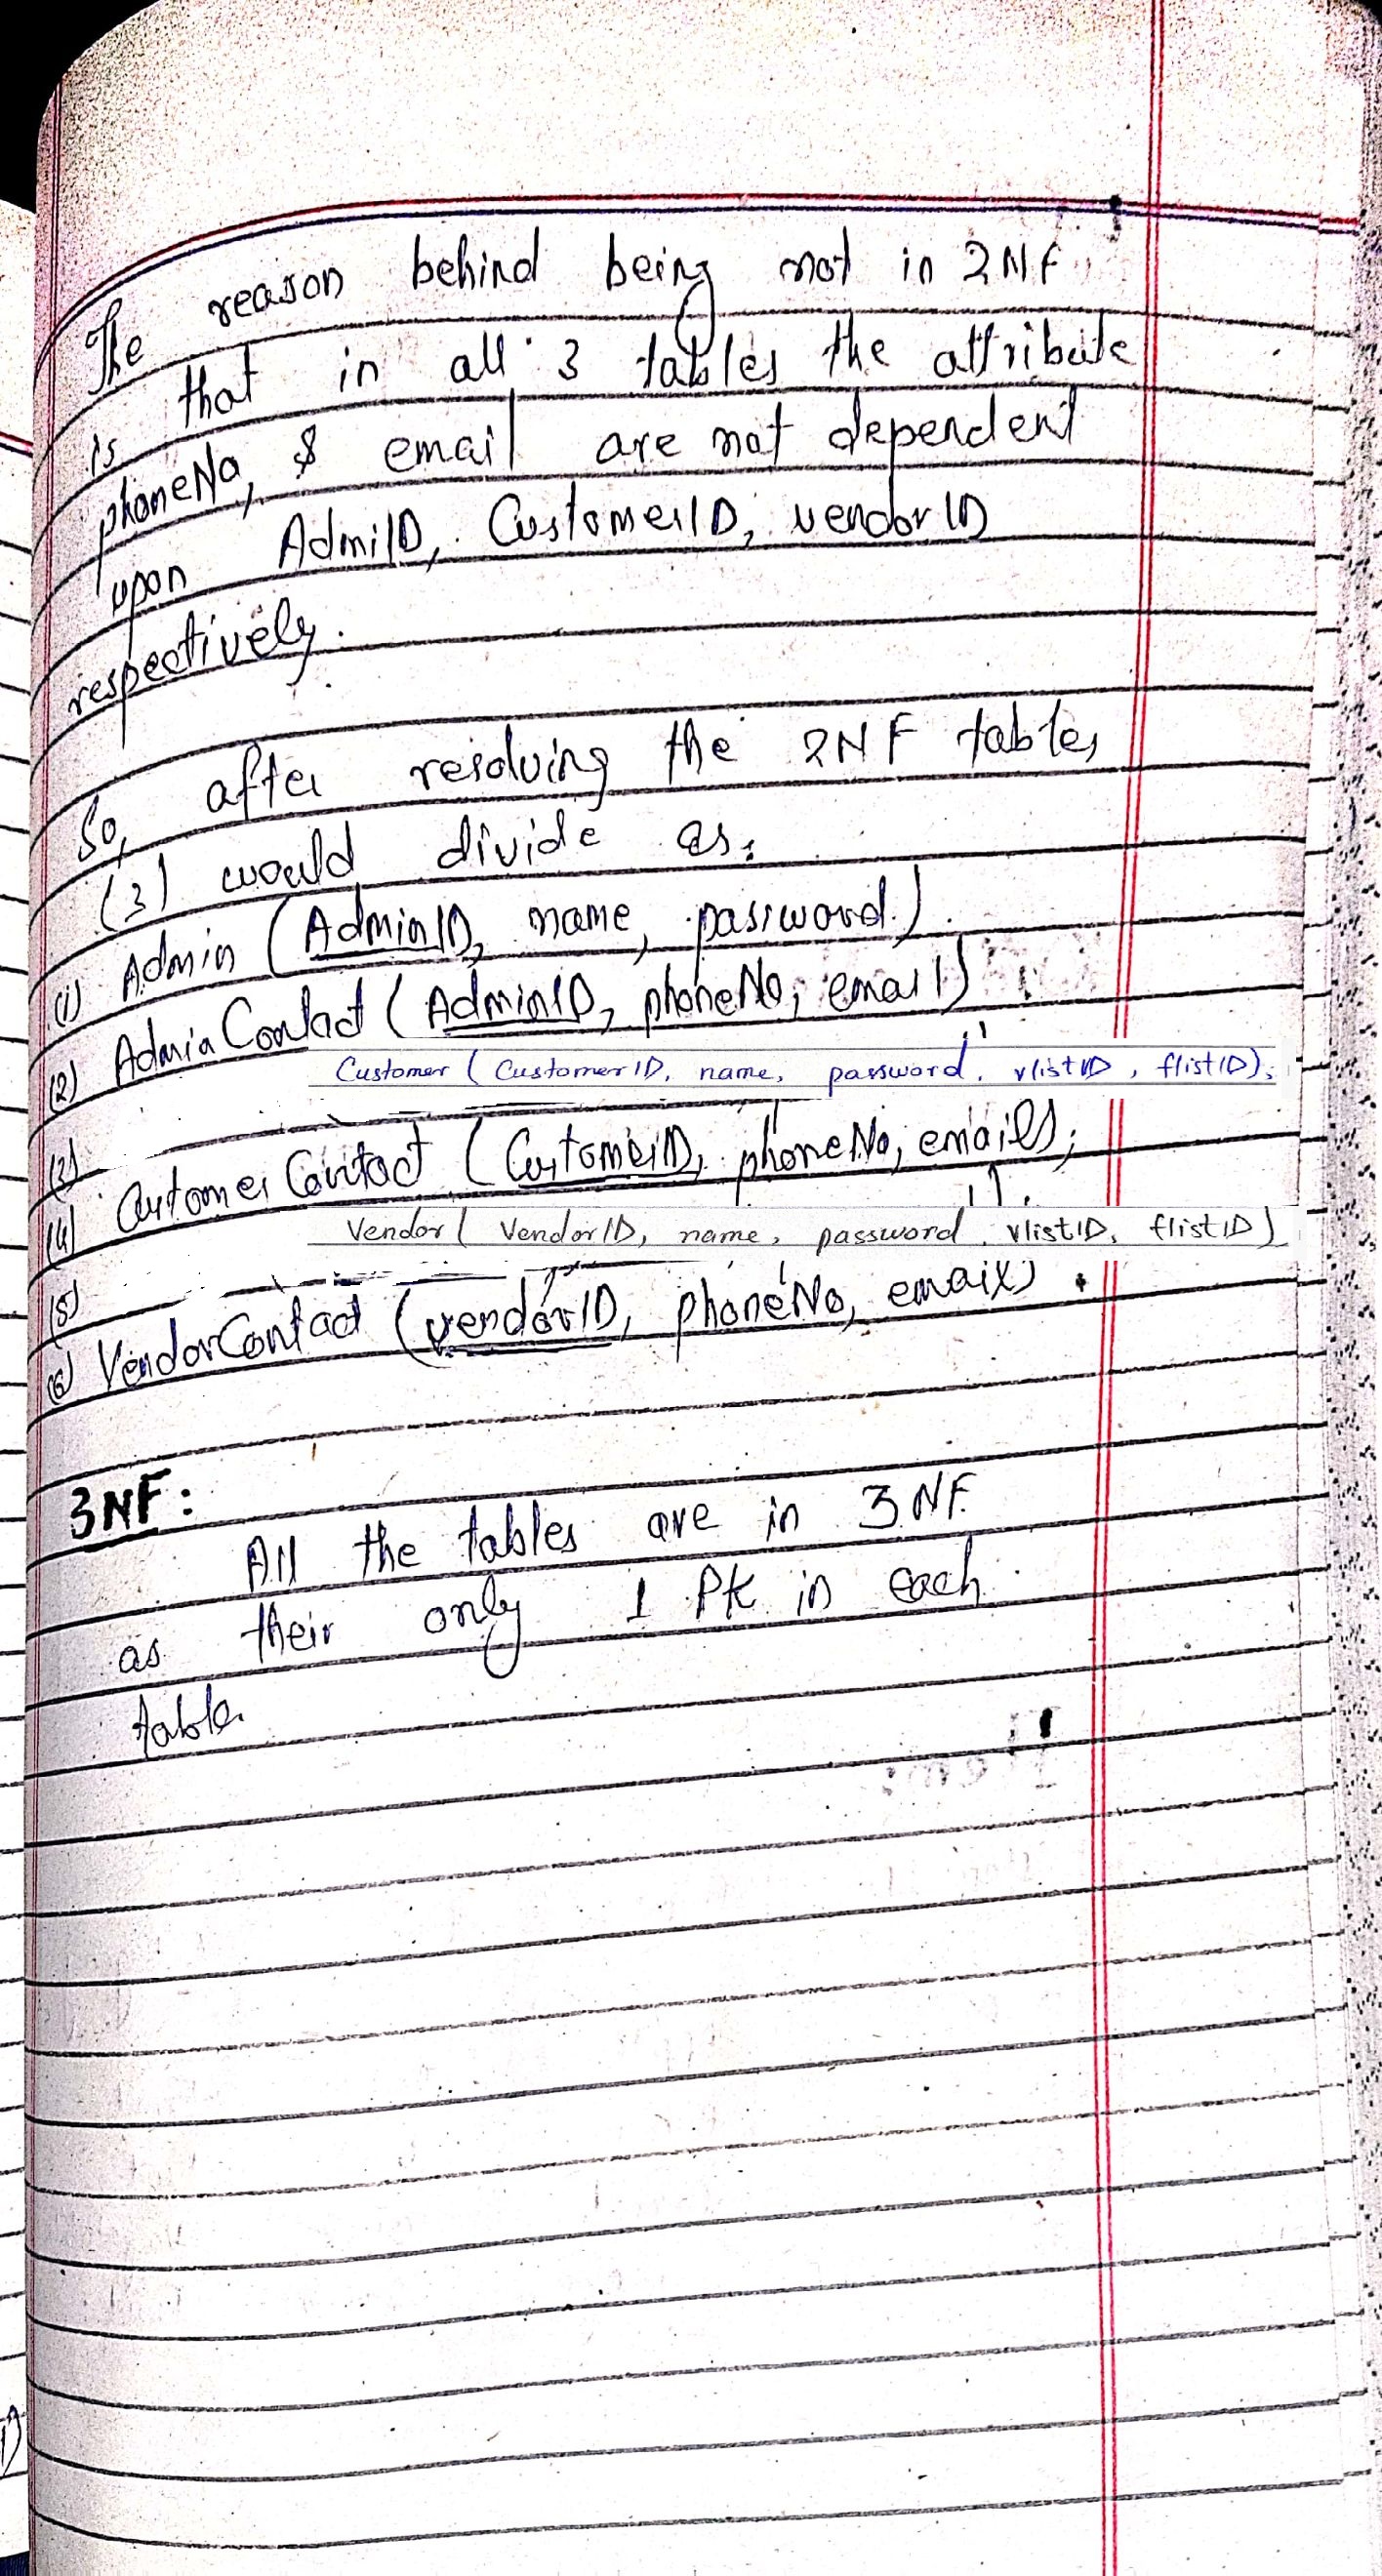 The reason behind being not in 2NF
is that in all 3 tables the attribute
phoneNo, & email are not dependent
upon AdmiID, CustomerID, vendorID
respectively.
So, after resolving the 2NF tables
(3) would divide as:
(1) Admin (AdminID, name, password).
(2) Admin Contact (AdminID, phoneNo, email)
(3) Customer (CustomerID, name, password, vlistID, flistID);
(4) Customer Contact (CustomerID, phoneNo, email);
(5) Vendor (VendorID, name, password, vlistID, flistID)
(6) VendorContact (vendorID, phoneNo, email).
3NF:
All the tables are in 3NF.
as their only 1 PK in each
table.